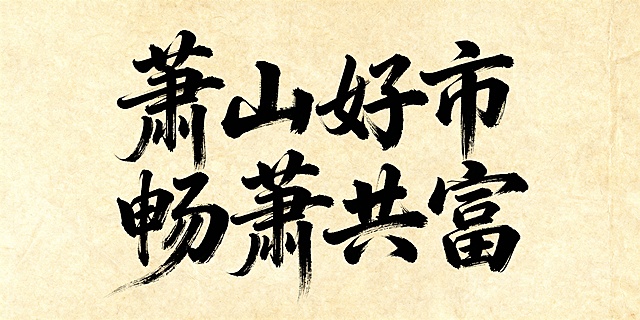 萧山好市
畅萧共富